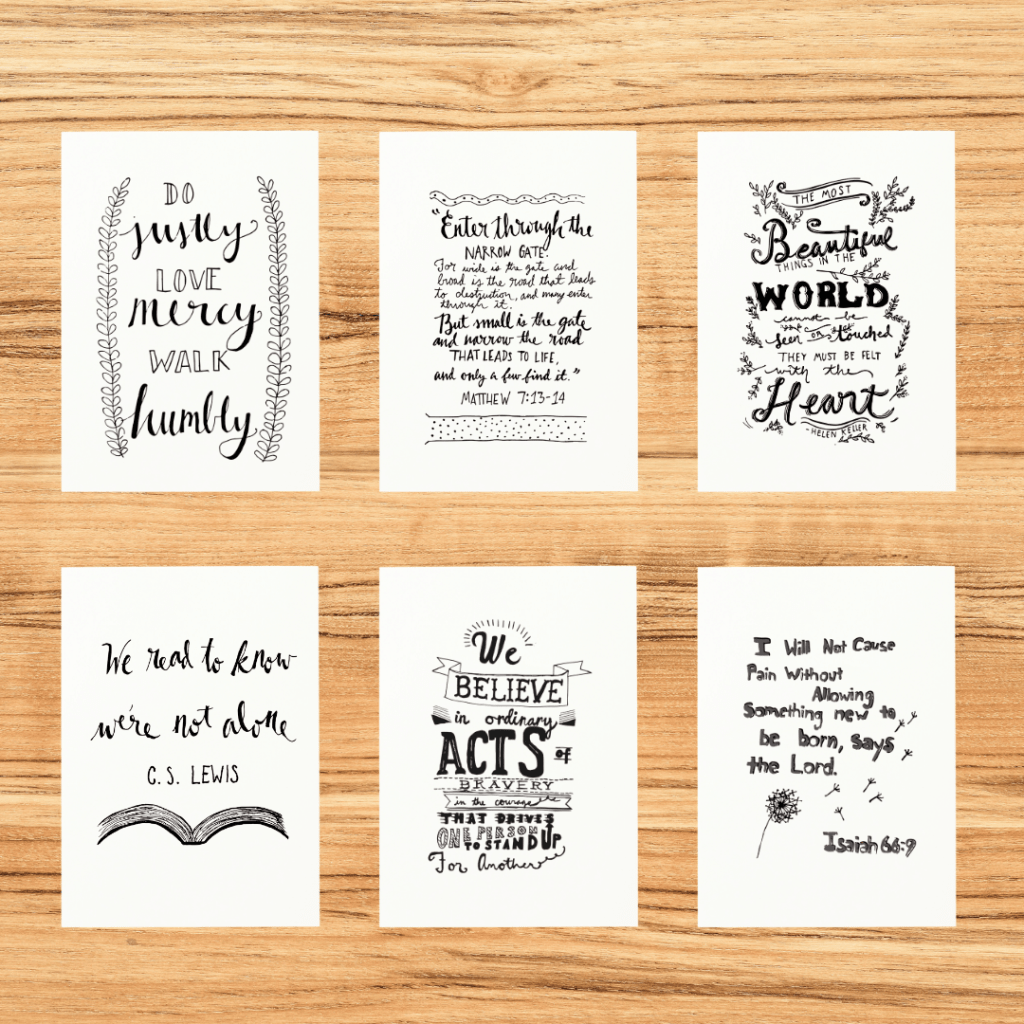 DO
justly
LOVE
mercy
WALK
humbly
"Enter through the
NARROW GATE.
For wide is the gate and
broad is the road that leads
to destruction, and many enter
through it.
But small is the gate
and narrow the road
THAT LEADS TO LIFE,
and only a few find it."
MATTHEW 7:13-14
THE MOST
Beautiful
THINGS IN THE
WORLD
cannot be
seen OR touched
THEY MUST BE FELT
with the
Heart
- HELEN KELLER
We read to know
we're not alone
C.S. LEWIS
We
BELIEVE
in ordinary
ACTS of
BRAVERY
in the courage
THAT DRIVES
ONE PERSON
TO STAND UP
For Another
I Will Not Cause
Pain Without
Allowing
Something new to
be born, says
the Lord.
Isaiah 66:9